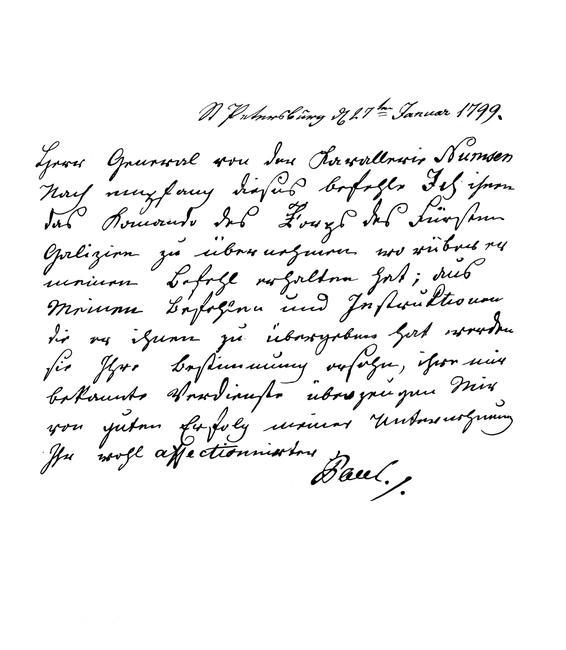 St Petersburg d 27ten Januar 1799.
Herr General von der Kavallerie Numsen
Nach empfang dieses befehle Ich ihnen
das Komando des Korps des Fürsten
Galizien zu übernehmen worüber er
meinen Befehl erhalten hat; aus
Meinen Befehlen und Instrucktionen
die er ihnen zu übergeben hat werden
sie Ihre Bestimmung ersehn, ihre mir
bekante Verdienste überzeugen Mir
von guten Erfolg meiner Unternehmung
Ihr wohl affectionnirter
Paul.